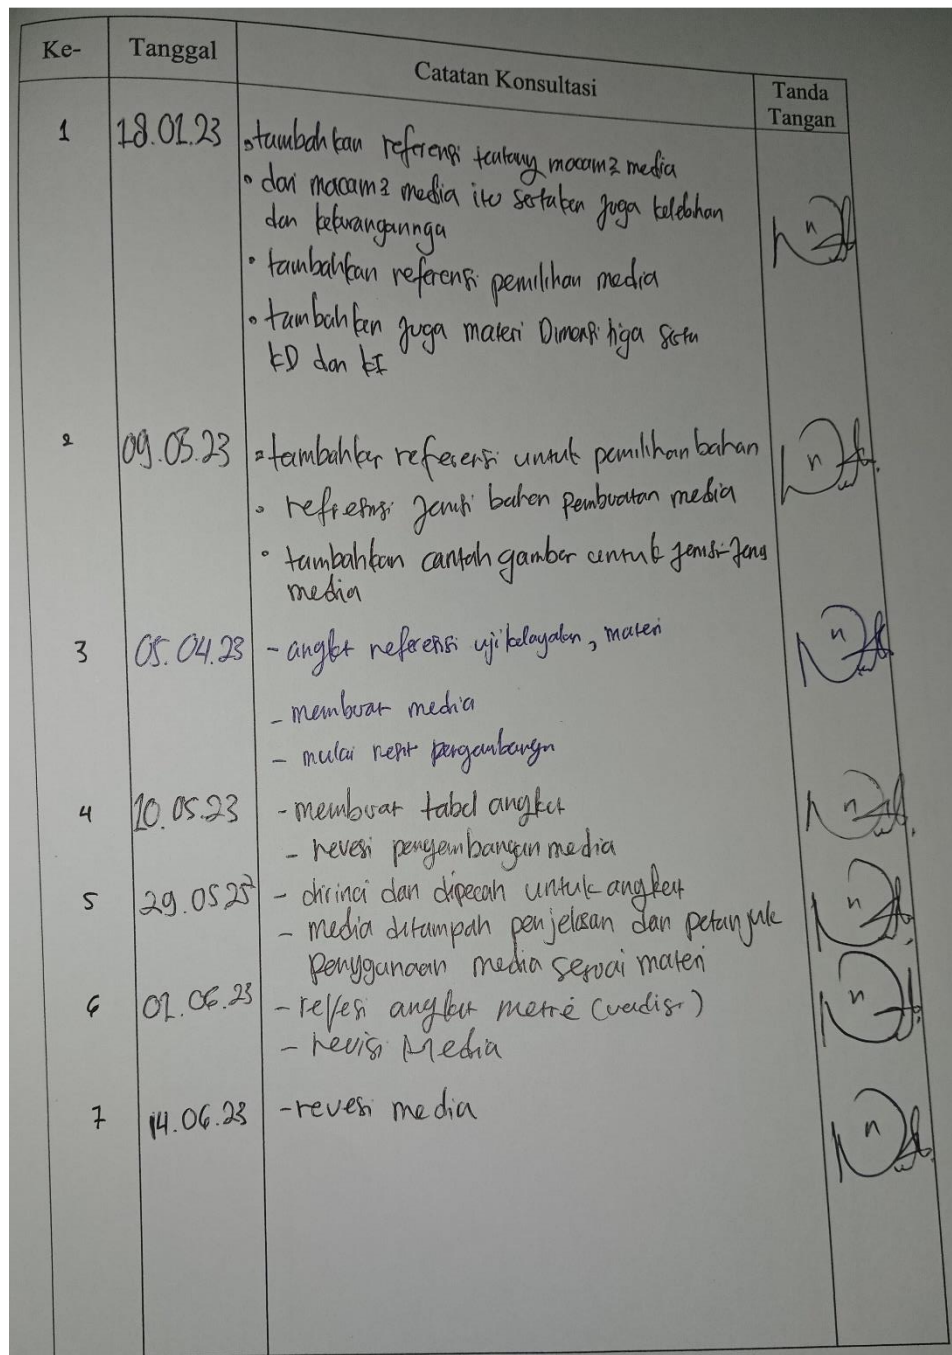 Ke- Tanggal Catatan Konsultasi Tanda Tangan
1 18.01.23 • tambahkan referensi tentang macam2 media
• dari macam2 media itu sertakan juga kelebihan
dan kekurangannya
• tambahkan referensi pemilihan media
• tambahkan juga materi Dimensi tiga serta
KD dan KI
2 09.03.23 • tambahkan referensi untuk pemilihan bahan
• refrensi jenis bahan pembuatan media
• tambahkan contoh gambar untuk jenis-jenis
media
3 05.04.23 - angket referensi uji kelayakan, materi
- membuat media
- mulai pengembangn
4 10.05.23 - membuat tabel angket
- revesi pengembangan media
5 29.05 23 - dirinci dan dipecah untuk angket
- media ditampah penjelasan dan petunjuk
penggunaan media sesuai materi
6 02.06.23 - refesi angket
- revisi Media
7 14.06.23 - revesi media